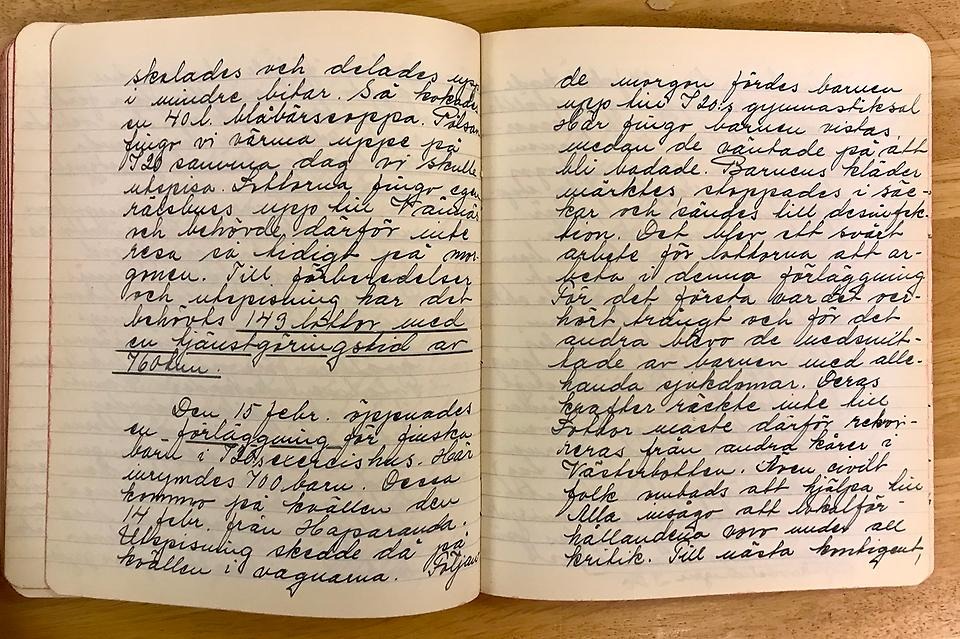 skalades och delades upp
i mindre bitar. Så kokades
en 40 l. blåbärssoppa.
fingo vi värma uppe på
I 20 samma dag vi skulle
utspisa. Lottorna fingo egen
rälsbuss upp till Vännäs
och behövde därför inte
resa så tidigt på mor-
gonen. Till förberedelser
och utspisning har det
behövts 149 lottor med
en tjänstgöringstid av
760 tim.
Den 15 febr. öppnades
en förläggning för finska
barn i I 20:s exercishus. Här
inrymdes 700 barn. Dessa
kommo på kvällen den
14 febr. från Haparanda.
Utspisning skedde då på
kvällen i vagnarna. Följan
de morgon fördes barnen
upp till I 20:s gymnastiksal
Här fingo barnen vistas,
medan de väntade på att
bli badade. Barnens kläder
märktes, stoppades i säc-
kar och sändes till desinfek-
tion. Det blev ett svårt
arbete för lottorna att ar-
beta i denna förläggning
För det första var det oer-
hört trångt och för det
andra blevo de nedsmit-
tade av barnen med alle-
handa sjukdomar. Deras
krafter räckte inte till
Lottor måste därför rekvi-
reras från andra kårer i
Västerbotten. Även civilt
folk ombads att hjälpa till
Alla insågo att lokalför-
hållandena voro under all
kritik. Till nästa kontigent,